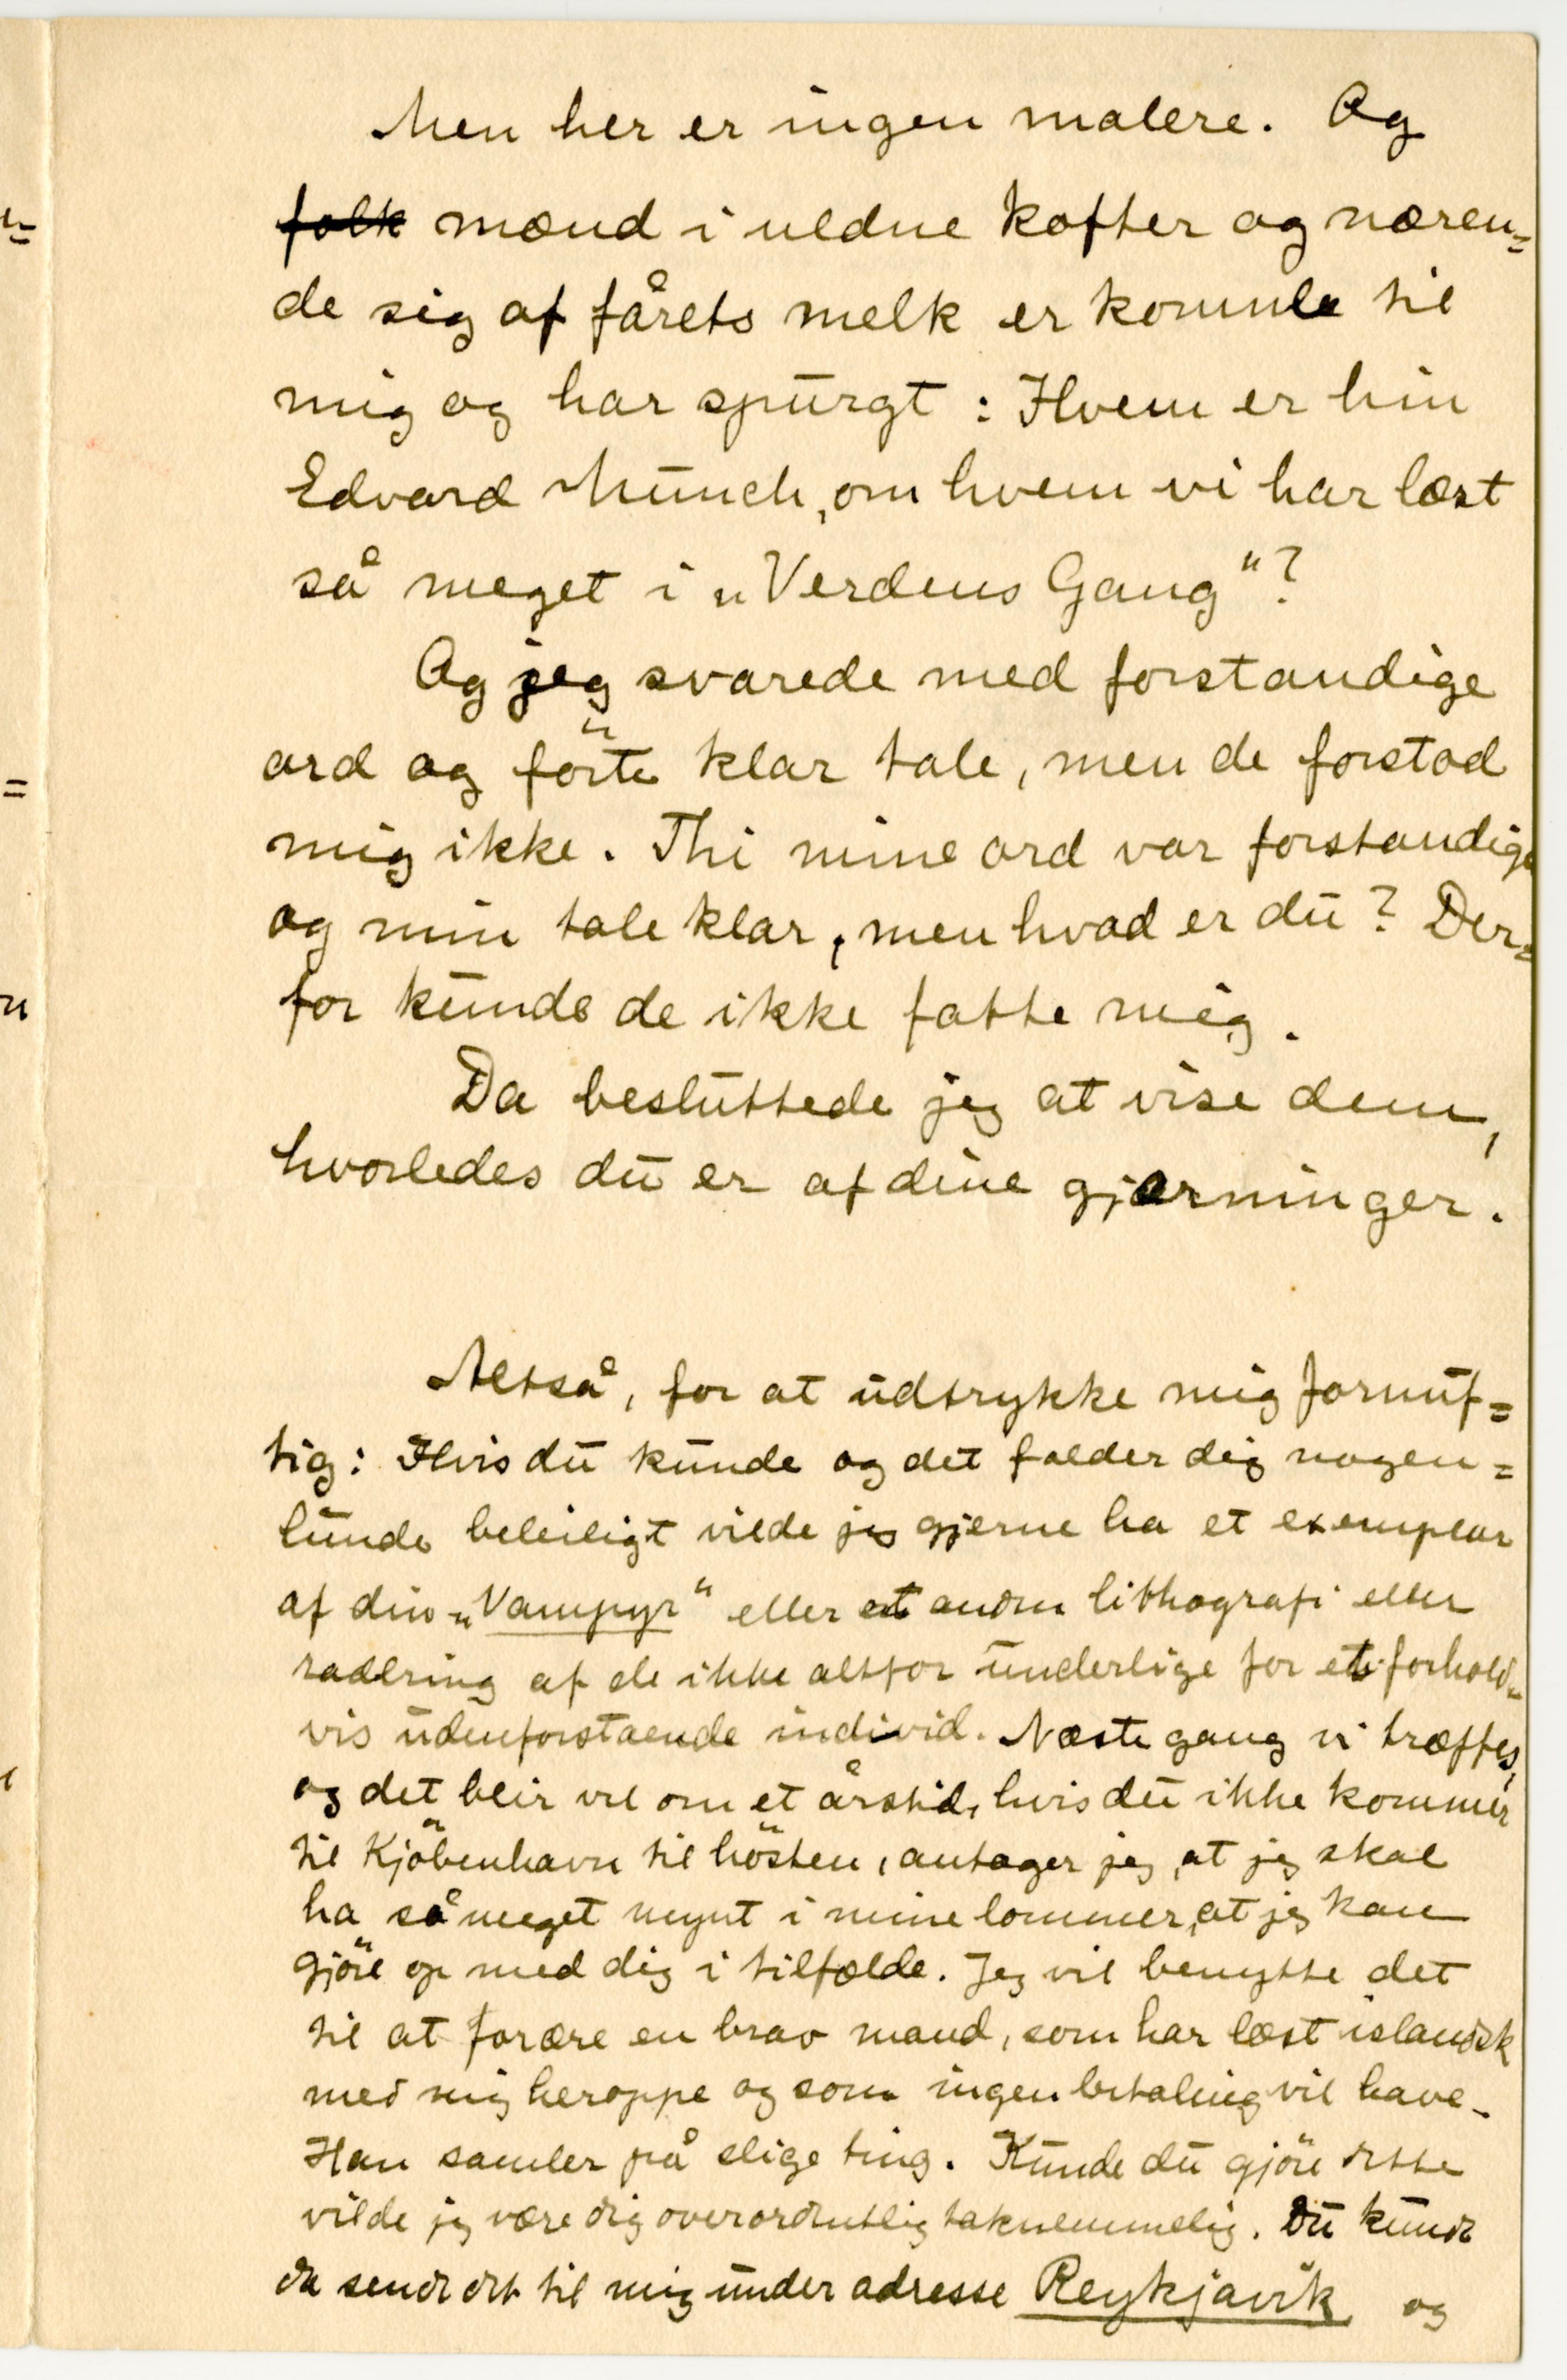 Men her er ingen malere. Og
folk mænd i uldne kofter og næren=
de sig af fårets melk er komne til
mig og har spurgt : Hvem er hin
Edvard Munch, om hvem vi har læst
så meget i „Verdens Gang“?
Og jeg svarede med forstandige
ord og förte klar tale, men de forstod
mig ikke. Thi mine ord var forstandige
og min tale klar, men hvad er du? Der=
for kunde de ikke fatte mig.
Da besluttede jeg at vise dem,
hvorledes du er af dine gjærninger.
Altså, for at udtrykke mig fornuf=
tig: Hvis du kunde og det falder dig nogen=
lunde beleiligt vilde jeg gjerne ha et exemplar
af din „Vampyr“ eller et andm lithografi eller
radering af de ikke altfor underlige for et forhold=
vis udenforstaende individ. Næste gang vi træffes,
og det blir vel om et årstid, hvis du ikke kommer
til Kjöbenhavn til hösten, antager jeg, at jeg skal
ha så meget mynt i mine lommer, at jeg kan
gjöre op med dig i tilfælde. Jeg vil benytte det
til at forære en brav mand, som har læst islandsk
med mig heroppe og som ingen betaling vil have.
Han samler på slige ting. Kunde du gjöre dette
vilde jeg være dig overordentlig taknemmelig. Du kunde
da sende det til mig under adresse Reykjavik og
=
=
n